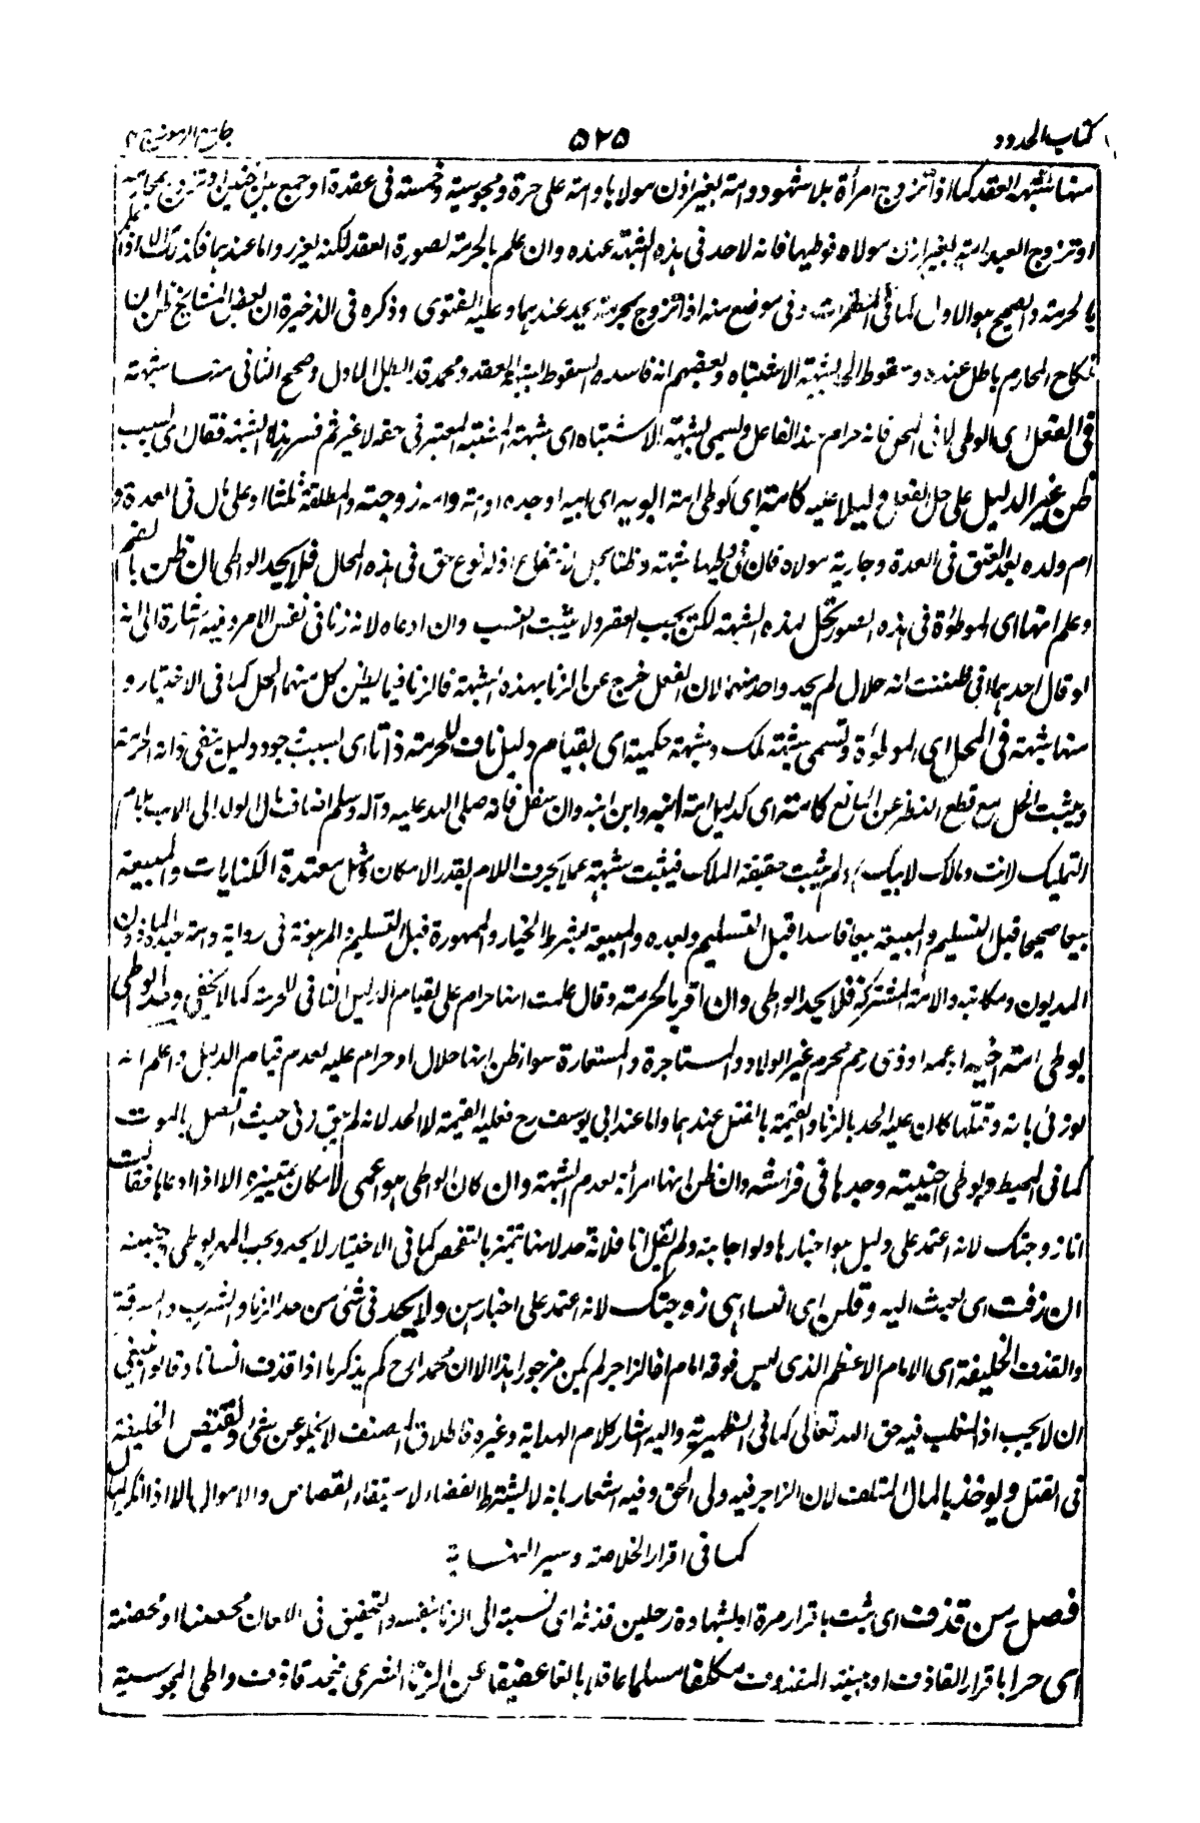 كتاب الحدود ٥٢٥ جامع الرموز ج ٢
منها شبهة العقد كما اذا تزوج امرأة بلا شهود او امة بغير اذن مولاها او امة على حرة ومجوسية وخمسة فى عقدة او جمع بين اختين او تزوج بمحارمه
او تزوج العبد امة بغير اذن مولاه فوطيها فانه لا حد فى هذه الشبهة عنده وان علم بالحرمة لصورة العقد لكنه يعزر واما عندهما فكذلك الا اذا علم
بالحرمة والصحيح هو الاول كما فى المضمرات وفى موضع منه اذا تزوج بمحرمة يحد عندهما وعليه الفتوى وذكره فى الذخيرة ان بعض المشايخ ظن ان
نكاح المحارم باطل عنده وسقوط الحد لشبهة الاشتباه وبعضهم انه فاسد والسقوط لشبهة العقد ومحمد قد ابطل الاول وصحح الثانى منها شبهة
فى الفعل اى الوطى لا فى المحل فانه حرام هذا الفاعل وتسمى بشبهة الاشتباه اى شبهة المشتبه المعتبر فى حقه لا غير ثم فسر هذه الشبهة فقال اى بسبب
ظن غير الدليل على حل الفعل دليلا عليه كامة اى كوطى امة ابويه اى ابيه او جده او امه وامة زوجته والمطلقة ثلثا او على مال فى العدة و
ام ولده بعد العتق فى العدة وجارية مولاه فان فى وطيها شبهة وظنا بحل الانتفاع اذ له نوع حق فى هذه الحال فلا يحد الواطى ان ظن بالفم
وعلم انها اى الموطوءة فى هذه الصور تحل لهذه الشبهة لكن يجب العقر ولا يثبت النسب وان ادعاه لانه زنا فى نفس الامر وفيه اشارة الى انه
لو قال احدهما انى ظننت انه حلال لم يحد واحد منهما لان الفعل خرج عن الزنا بهذه الشبهة فالزنا فيما يظن كل منهما الحل كما فى الاختيار و
منها شبهة فى المحل اى الموطوءة وتسمى شبهة ملك وشبهة حكمية اى بقيام دليل ناف للحرمة ذاتا اى بسبب وجود دليل ينفى ذاته الحرمة
ويثبت الحل مع قطع النظر عن المانع كامة اى كدليل امة ابنه وابن ابنه وان سفل فانه صلى الله عليه وآله وسلم اضاف مال الولد الى الاب بلام
التمليك لانت ومالك لابيك ولم يثبت حقيقة الملك فيثبت شبهة عملا بحرف اللام بقدر الامكان ومثل معتدة الكنايات والمبيعة
بيعا صحيحا قبل التسليم والمبيعة بيعا فاسدا قبل التسليم وبعده والمبيعة بشرط الخيار والممهورة قبل التسليم والمرهونة فى رواية وامة عبده الماذون
المديون ومكاتبه والامة المشتركة فلا يحد الواطى وان اقر بالحرمة وقال علمت انها حرام على لقيام الدليل النافى للحرمة كما لا يخفى وحد الواطى
بوطى امة اخيه او عمه او ذى رحم محرم غير الولاد والمستاجرة والمستعارة سوا ظن انها حلال او حرام عليه لعدم قيام الدليل واعلم انه
لو زنى بامة وقتلها كان عليه الحد بالزنا والقيمة بالقتل عندهما واما عند ابى يوسف رح فعليه القيمة لا الحد لانه لم يبق زنى حيث اتصل بالموت
كما فى المحيط وبوطى اجنبية وجدها فى فراشه وان ظن انها امرأته لعدم الشبهة وان كان الواطى هو اعمى لامكان تمييزه الا اذا دعاها فقالت
انا زوجتك لانه اعتمد على دليل هو اخبارها ولو اجابته ولم تقل انا فلانة حد لانها تتميز بالتفحص كما فى الاختيار لا يحد ويجب المهر بوطى اجنبية
ان زفت اى بعثت اليه وقلن اى النساء هى زوجتك لانه اعتمد على اخبارهن ولا يحد فى شئ من حد الزنا والشرب والسرقة
والقذف الخليفة اى الامام الاعظم الذى ليس فوقه امام اذ الزاجر لم يكن مزجورا هذا الا ان محمدا رح لم يذكر ما اذا قذف انسانا وقالوا ينبغى
ان لا يجب اذ المغلب فيه حق الله تعالى كما فى الظهيرية واليه اشار كلام الهداية وغيره فاطلاق المصنف لا يخلو عن شئ ويقتص الخليفة
فى القتل ويوخذ بالمال المتلف لان الزاجر فيه ولى الحق وفيه اشعار بانه لا يشترط القضاء لاستيفاء القصاص والاموال الا اذا انكر المال
كما فى اقرار الخلاصة وسير النهاية
فصل من قذف اى ثبت باقرار مرة او بشهادة رجلين قذفه اى نسبة الى الزنا بنفسه والتحقيق فى اللعان محصنا او محصنة
اى حرا باقرار القاذف او ببينة المقذوف مكلفا مسلما عاقلا بالغا عفيفا عن الزنا الشرعى فيحد قاذف واطى المجوسية